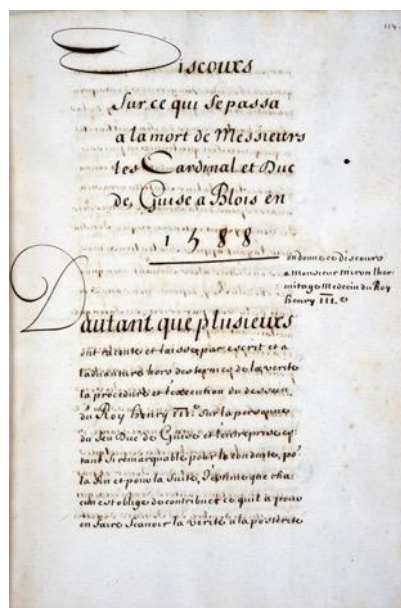 Discours
Sur ce qui Se passa
a la mort de Messieurs
les Cardinal et Duc
de Guise a Blois en
1588
on donne ce discours
a Monsieur miron lher
mitage Medecin du Roy
henry III.e
Dautant que plusieurs
ont raconté et laissé par escrit et a
ladvanture hors des termes de la verité
la procedure et l'execution du dessein
du Roy henry III.e Sur la personne
du feu Duc de Guise et l'entreprise es
tant Si remarquable pour la conduite, po.r
la fin et pour la Suite, J'estime que cha
cun est obligé de contribuer ce quil a pour
en faire Scavoir la verité a la posterité